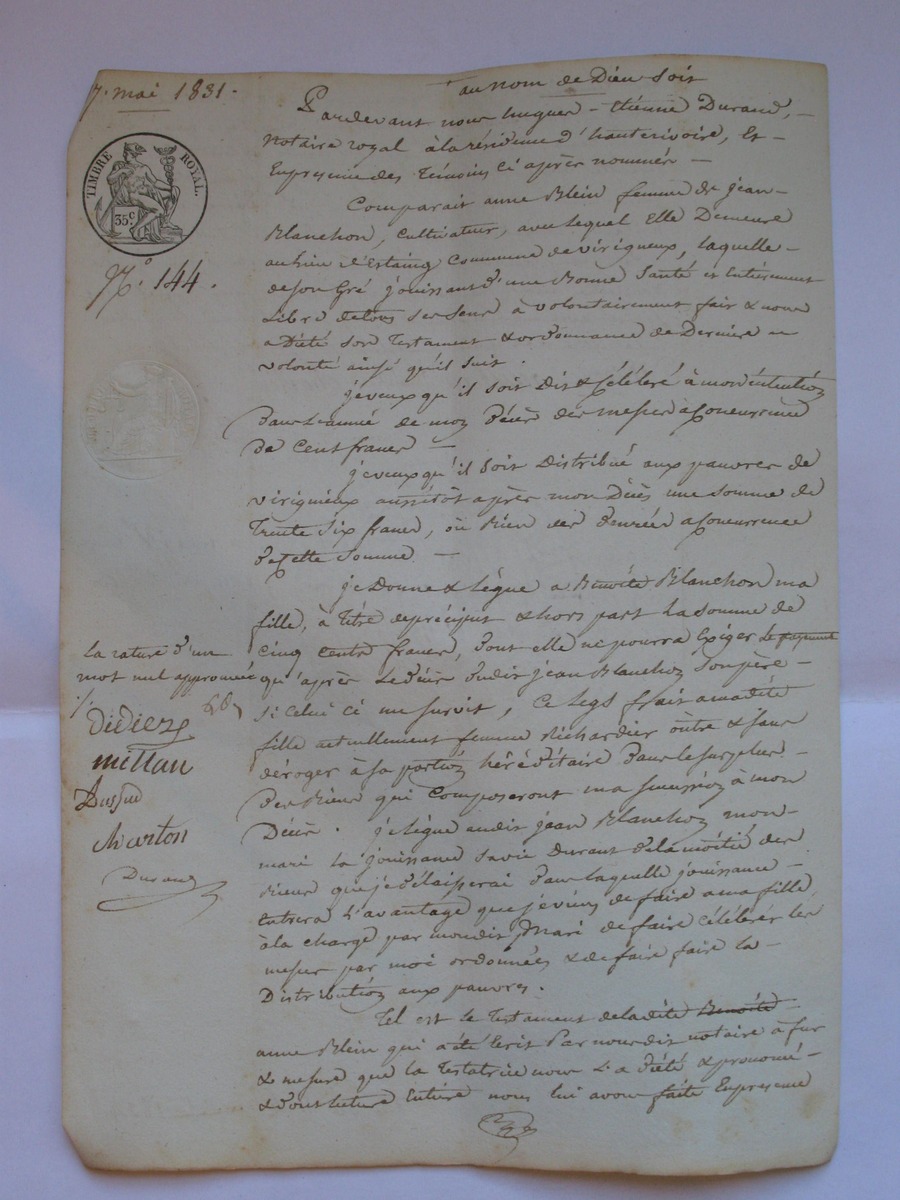 7. mai 1831.
TIMBRE ROYAL.
35c.
N.° 144.
au nom de Dieu soit
Pardevant nous hugues-étienne Durand,-
Notaire royal à la résidence d'hauterivoire, Et
En presence des Témoins Ci après nommés-
Comparait anne Blein femme de jean-
Blanchon, Cultivateur, avec lequel Elle Demeure
au lieu d'Estaing Commune de virigneux, laquelle-
de son Gré jouissant d'une Bonne Santé et Entièrement
Libre de tous ses sens à volontairement fait & nous
a Dicté son Testament & ordonnance de Dernière
volonté ainsi qu'il suit.
je veux qu'il soit Dit & Célébré à mon intention
Dans l'année de mon Décès des messes a Concurrence
De Cent francs-
je veux qu'il soit Distribué aux pauvres de
virigneux aussitôt après mon Décès une somme de
Trente Six francs, où Bien des Denrées a Concurrence
De Cette Somme-
je Donne & lègue a Benoite Blanchon ma
fille, à Titre de préciput & hors part la somme de
Cinq Cents francs, Dont elle ne pourra Exiger le payement
qu'après le Décès dudit jean Blanchon Son père-
si Celui ci me survit, Ce legs fait a madite
fille actuellement femme Richardier outre & sans
déroger à sa portion héréditaire Dans le surplus-
Des Biens qui Composeront ma succession à mon
Décès. je lègue audit jean Blanchon mon-
mari la jouissance sa vie Durant de la moitié des
Biens que je Délaisserai Dans laquelle jouissance-
Entrera l'avantage que je viens de faire a ma fille
à la charge par mondit Mari de faire Célébrer les
messes par moi ordonnées & de faire faire la-
Distribution aux pauvres.
Tel est le Testament de ladite Benoite
anne Blein qui a été Ecrit Par nous dit notaire à fur
& mesure que la Testatrice nous l'a Dicté & prononcé-
& Dont lecture Entière nous lui avons faite En presence
la rature d'un
mot nul approuvée
Didier
mittau
Charton
Durand